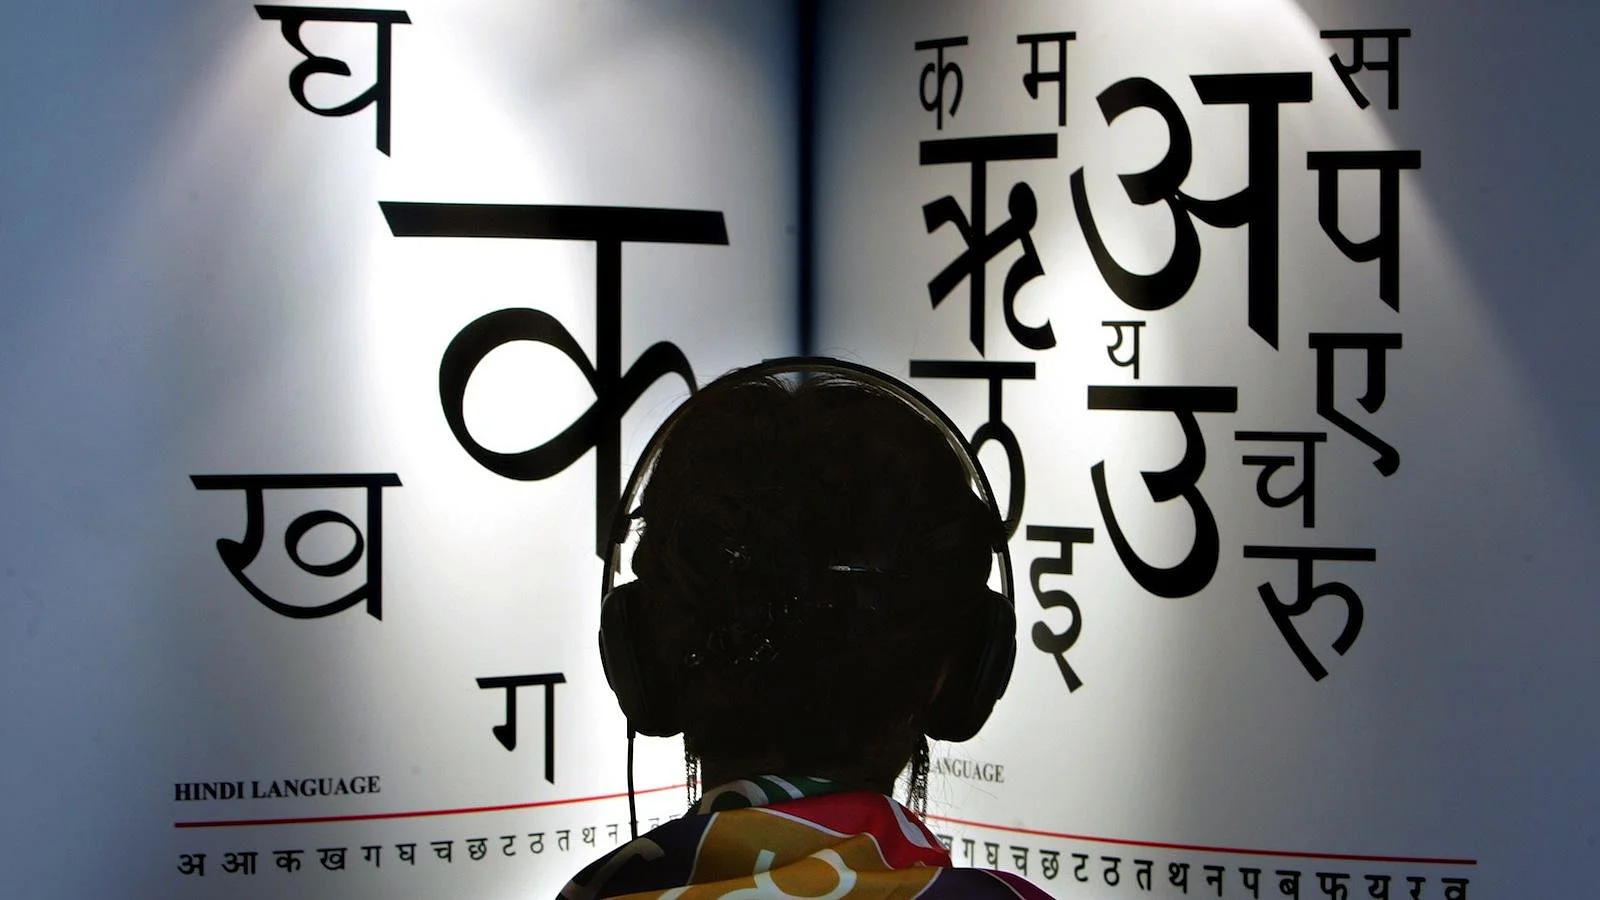 घ
क
ख
ग
HINDI LANGUAGE
अ आ क ख ग घ च छ ट ठ त थ न
क म स
ऋ अ प
य
उ ए
च
इ रु
LANGUAGE
ग घ च छ ट ठ त थ न प ब फ य र व